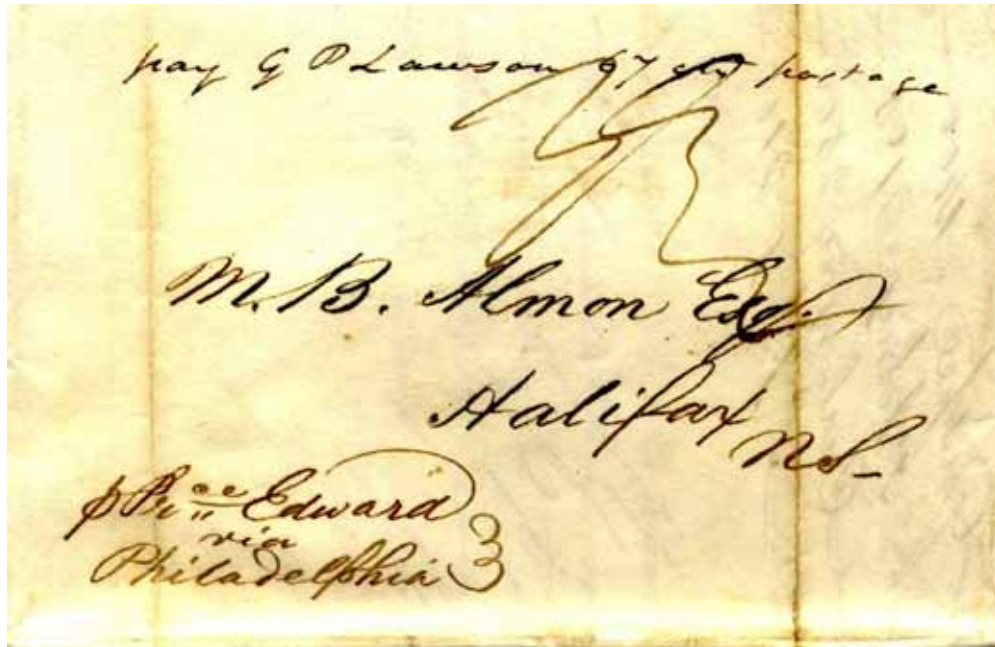 pay G P Lawson 67 cts postage
M. B. Almon Esq.
Halifax
NS-
p Prince Edward
via
Philadelphia